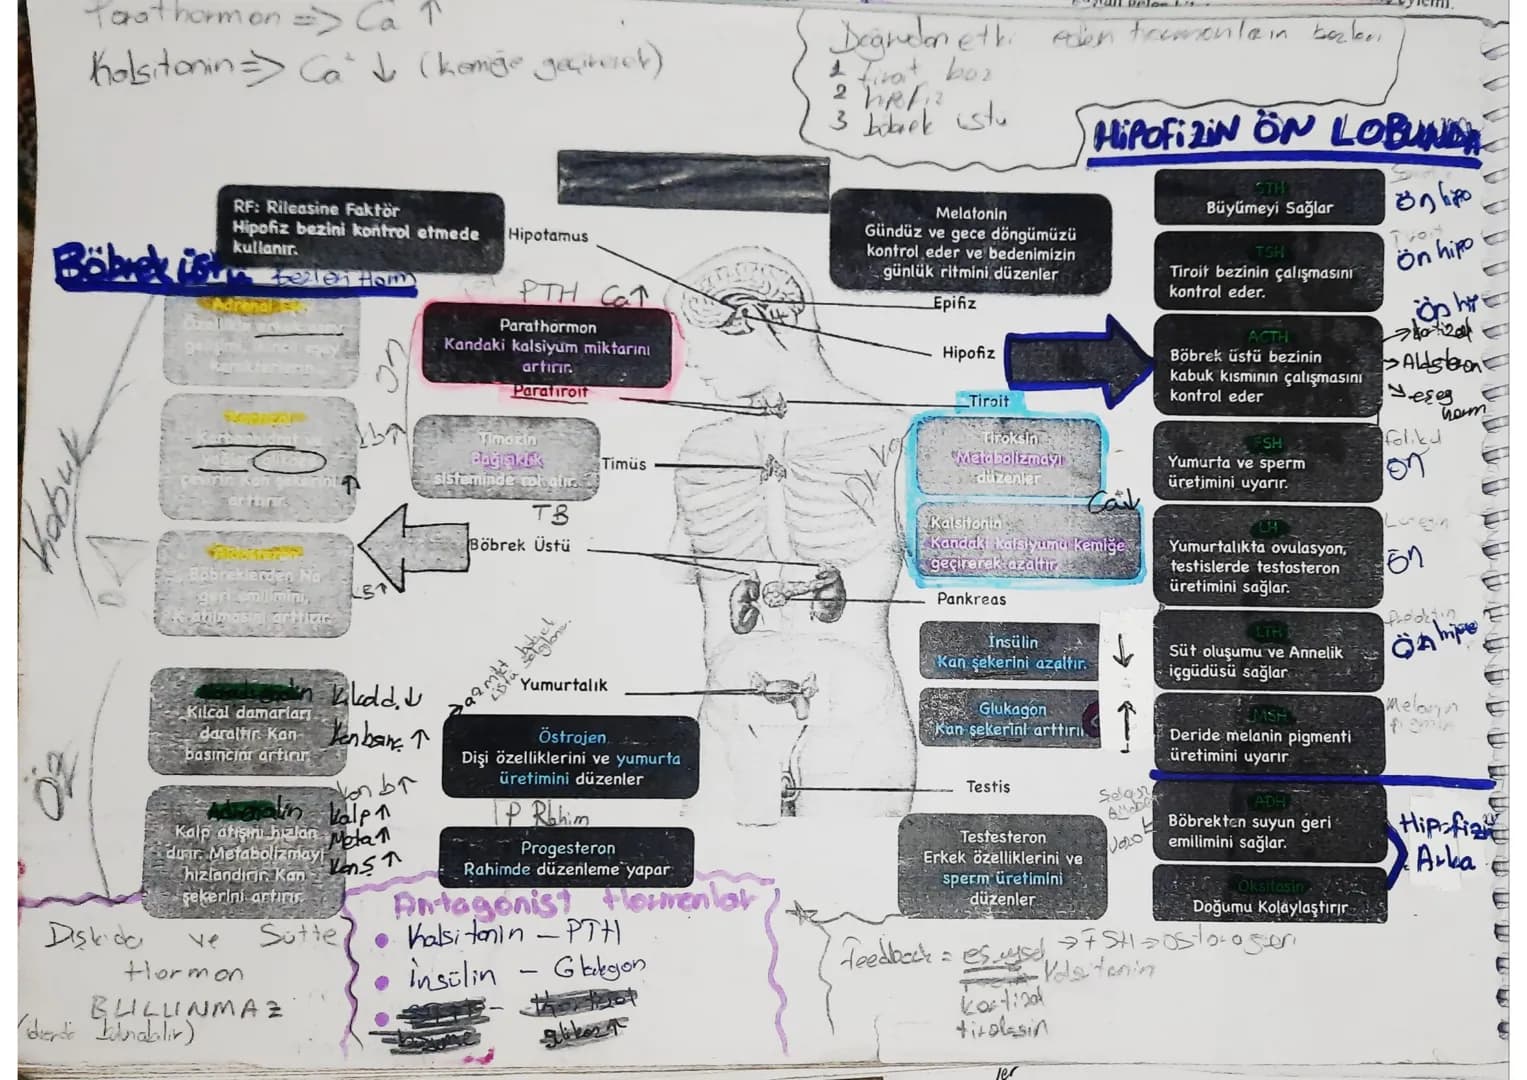 Parathormon => Ca ↑
Kalsitonin => Ca ↓ (kemiğe geçirerek)
Doğrudan etki eden hormonların bezleri
1 tiroit bez
2 hipofiz
3 böbrek üstü
HİPOFİZİN ÖN LOBUNDA
RF: Rileasine Faktör
Hipofiz bezini kontrol etmede
kullanır.
Hipotamus
Melatonin
Gündüz ve gece döngümüzü
kontrol eder ve bedenimizin
günlük ritmini düzenler
Epifiz
Hipofiz
STH
Büyümeyi Sağlar
Ön hipo
TSH
Tiroit bezinin çalışmasını
kontrol eder.
Ön hipo
ACTH
Böbrek üstü bezinin
kabuk kısmının çalışmasını
kontrol eder
→ kortizol
→ Aldsteron
→ eşeg
horm
FSH
Yumurta ve sperm
üretimini uyarır.
folikul
Ön
LH
Yumurtalıkta ovulasyon,
testislerde testosteron
üretimini sağlar.
Ön
LTH
Süt oluşumu ve Annelik
içgüdüsü sağlar
Ön hipo
MSH
Deride melanin pigmenti
üretimini uyarır
ADH
Böbrekten suyun geri
emilimini sağlar.
Oksitasin
Doğumu Kolaylaştırır
Hipofizin
Arka
Böbrek üstü
bezleri Horm
Kabuk
çevirir. Kan şekerini
arttırır.
Böbreklerden Na
geri emilimini,
K atılmasını arttırır.
Öz
Kılcal damarları
daraltır. Kan
basıncını artırır.
Kılcal d. ↓
Kan basınç ↑
Adrenalin
Kalp atışını hızlan
dırır. Metabolizmayı
hızlandırır. Kan
şekerini artırır.
Kan b ↑
Kalp ↑
Meta ↑
Kan Ş ↑
PTH Ca ↑
Parathormon
Kandaki kalsiyum miktarını
artırır.
Paratiroit
Timozin
Bağışıklık
sisteminde rol alır.
Timüs
TB
Böbrek Üstü
Tiroit
Tiroksin
Metabolizmayı
düzenler
Ca ↓
Kalsitonin
Kandaki kalsiyumu kemiğe
geçirerek azaltır
Pankreas
İnsülin
Kan şekerini azaltır. ↓
Glukagon
Kan şekerini arttırır ↑
Yumurtalık
Östrojen
Dişi özelliklerini ve yumurta
üretimini düzenler
P Rahim
Progesteron
Rahimde düzenleme yapar
Testis
Testesteron
Erkek özelliklerini ve
sperm üretimini
düzenler
Dışkıda ve Sütte
Hormon
BULUNMAZ
Antagonist Hormonlar
Kalsitonin – PTH
İnsülin – Glukagon
Feedback = eşeysel → FSH →
Kalsitonin
kortizol
tiroksin